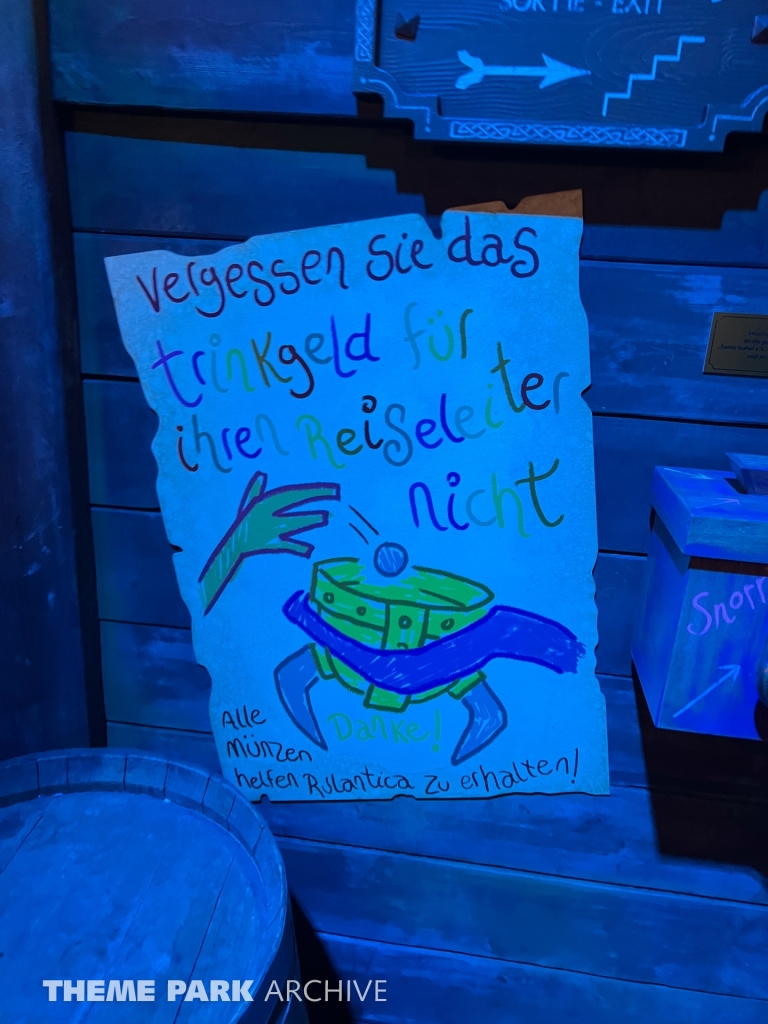 SORTIE - EXIT
vergessen Sie das
trinkgeld für
ihren Reiseleiter
nicht
Danke!
Alle
Münzen
helfen Rulantica zu erhalten!
Snorr
THEME PARK ARCHIVE